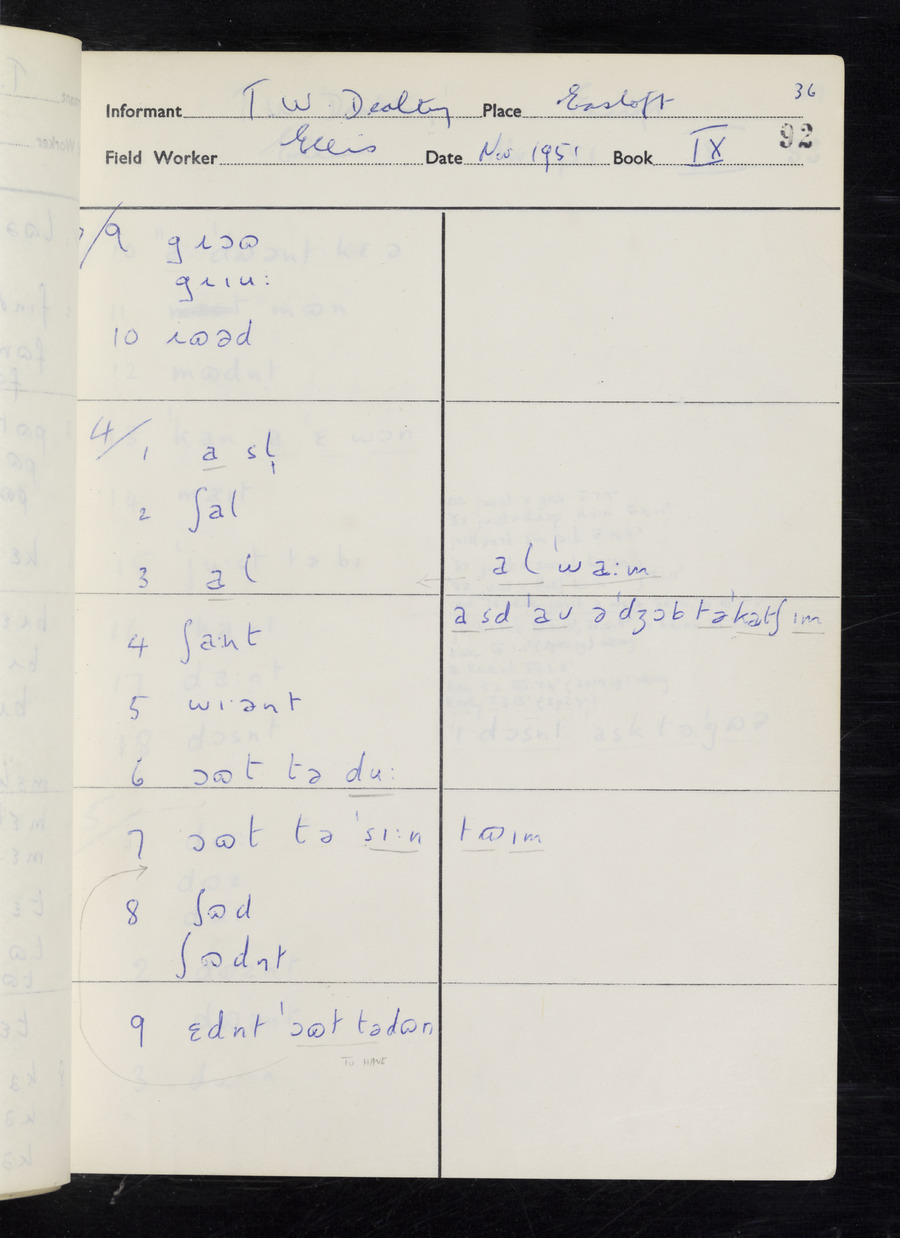 36
Informant T. W. Dealtry Place Eastoft
Field Worker Ellis Date Nov 1951 Book IX 92
/9 gɹɔɷ
gɹɪu:
10 ɹɷəd
4/1 a sl̩
2 ʃal
3 al al ˈwa:m
asd ˈav əˈdʒɔb təˈkatʃ ɪm
4 ʃant
5 wɪənt
6 ɔɷt tə du:
7 ɔɷt tə ˈsɪ:n tɷɪm
8 ʃɷd
ʃɷdnt
9 ɛdnt ˈɔɷt tədɷn
TO HAVE